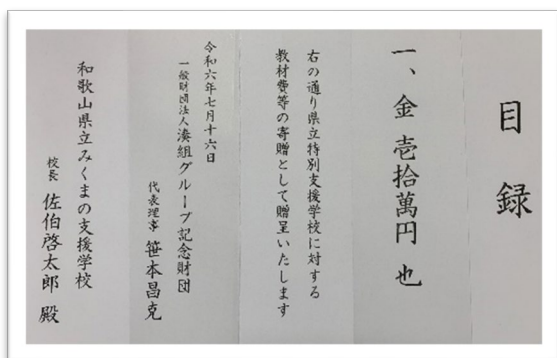 目録
一、金 壱拾萬円 也
右の通り県立特別支援学校に対する
教材費等の寄贈として贈呈いたします
令和六年七月十六日
一般財団法人湊組グループ記念財団
代表理事 笹本昌克
和歌山県立みくまの支援学校
校長 佐伯啓太郎 殿